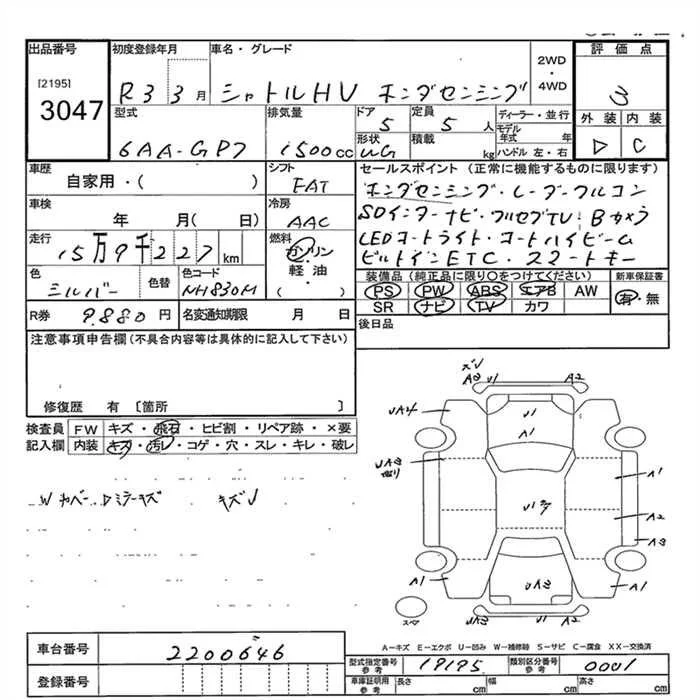 出品番号 初度登録年月 車名・グレード 評価点
[2195] 3047
R3 3月 シャトルHV ホンダセンシング 2WD・4WD 3
型式 排気量 ドア 定員 ディーラー・並行 外装 内装
6AA-GP7 1500cc 5 5人 モデル年式 年 D C
形状 UG 積載 kg ハンドル 左・右
車歴 シフト セールスポイント (正常に機能するものに限ります)
自家用・( ) FAT ホンダセンシング・レーダークルコン
車検 冷房 SDインターナビ・フルセグTV・Bカメラ
年 月( 日) AAC LEDオートライト・オートハイビーム
走行 燃料 ビルトインETC・スマートキー
15万9千227km ガソリン・軽油・( )
色 色替 色コード 装備品 (純正品に限り○をつけてください) 新車保証書
シルバー NH830M PS PW ABS エアB AW 有・無
SR ナビ TV カワ
R券 9.880円 名変通知期限 月 日 後日品
注意事項申告欄(不具合内容等は具体的に記入して下さい)
修復歴 有 〔箇所 〕
検査員 FW キズ・飛石・ヒビ割・リペア跡・×要
記入欄 内装 キズ・汚レ・コゲ・穴・スレ・キレ・破レ
W カバー Dミラーキズ キズV
ズレ
A2 U1 A2
UA4 U1
A1
UA3
A1
A2
A3
A1 UA3 A1
スペア
A-キズ E-エクボ U-凹み W-補修跡 S-サビ C-腐食 XX-交換済
車台番号 2200646
型式指定番号 参考 19195 類別区分番号 参考 0001
登録番号 車庫証明用 参考 長さ cm 幅 cm 高さ cm